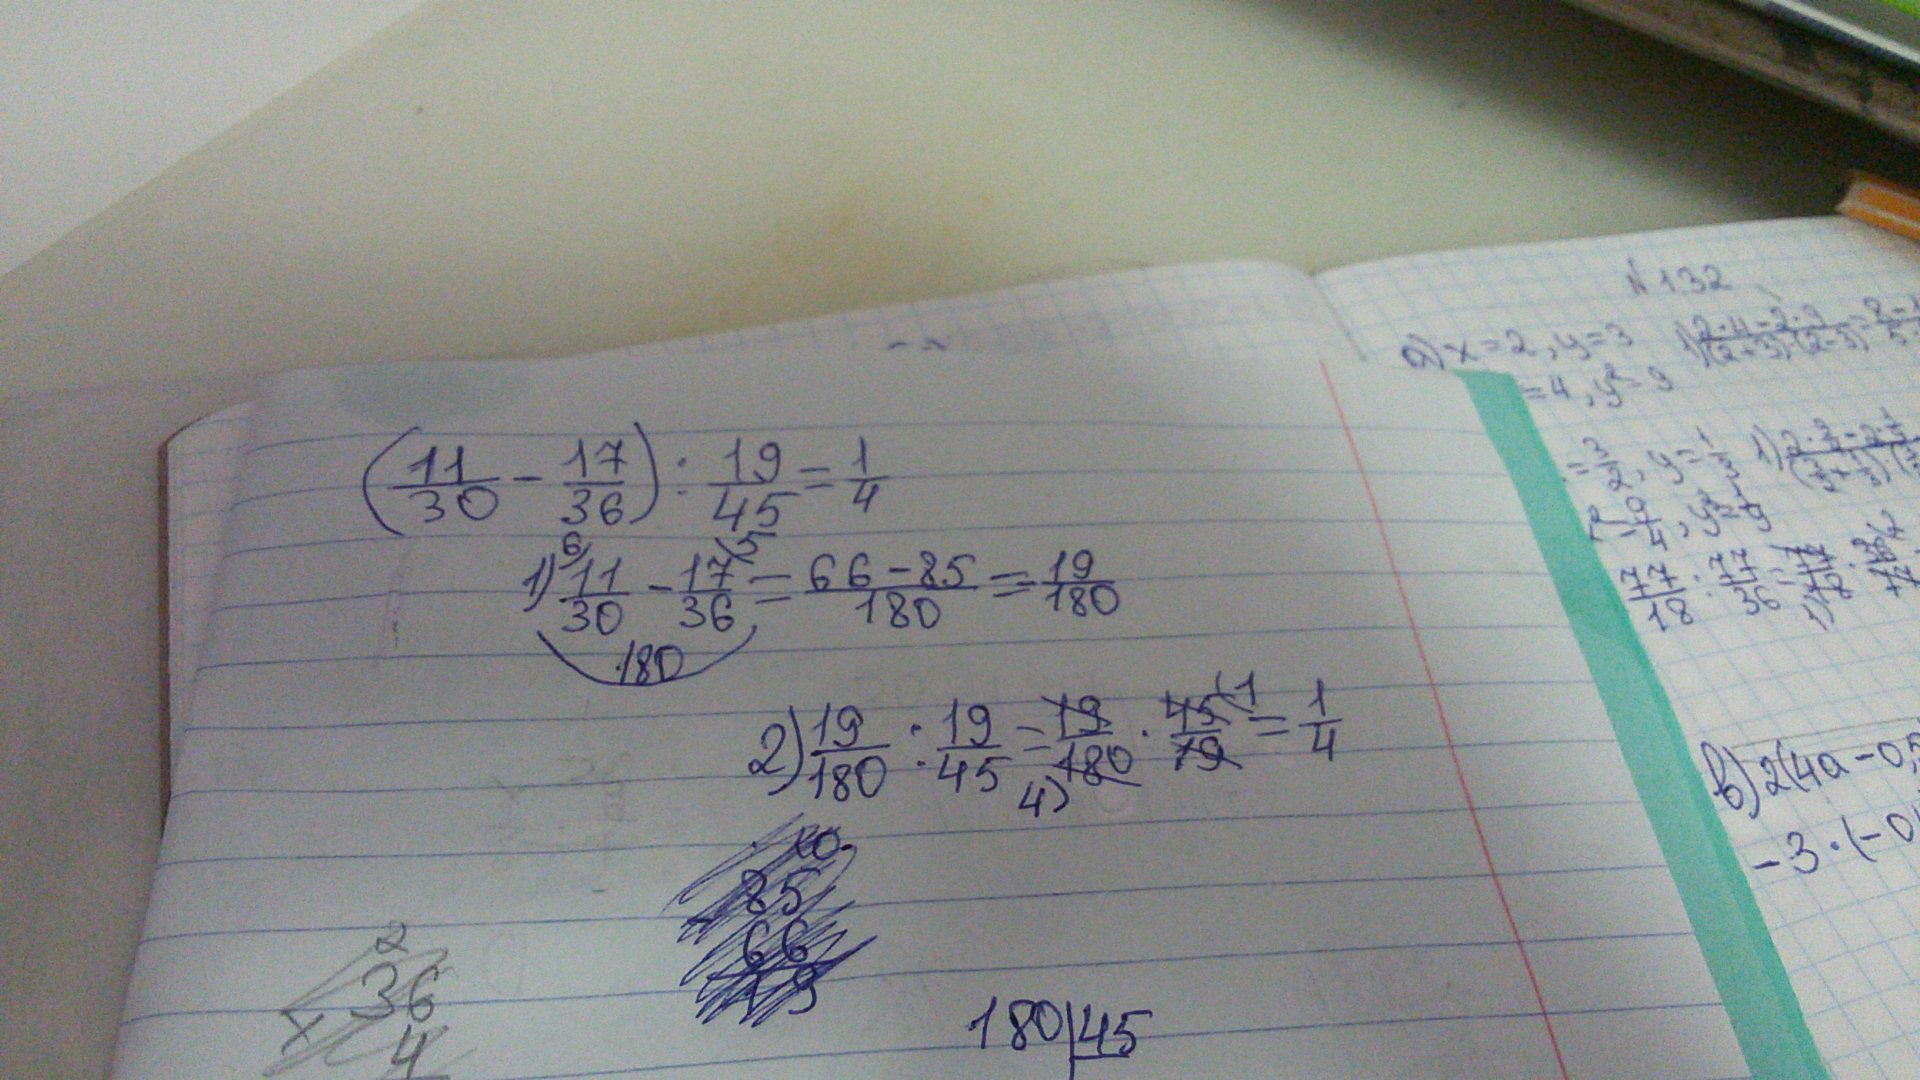 (11/30 - 17/36) : 19/45 = 1/4
1) 6/ 11/30 - 17/36 \5 = 66-85/180 = 19/180
180
2) 19/180 : 19/45 = 19/180 · 45/19 = 1/4
4) \1
10
85
66
19
2
36
× 4
180 | 45
N 132
а) x = 2, y = 3
= 4, y² = 9
= 3/2, y = 1/3
77/18 : 77/36 =
в) 2(4a - 0,
- 3 · (-0